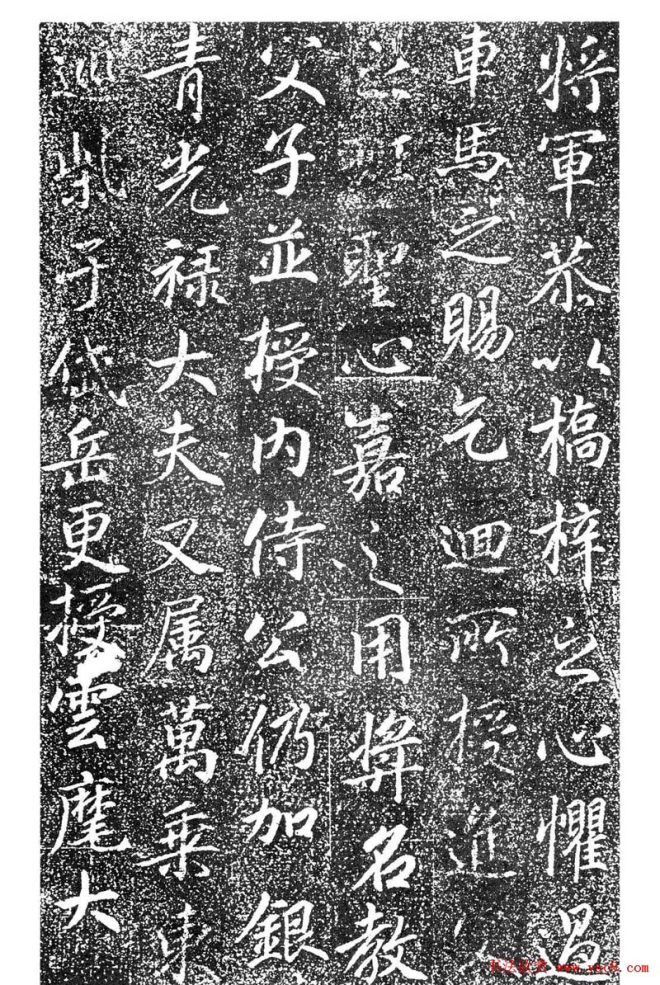 将軍恭以槁梓之心懼温
車馬之賜乞迴所授近
之聖心嘉之用奬名教
父子並授内侍公仍加銀
青光禄大夫又属萬乗東
巡柴于岱岳更授雲麾大